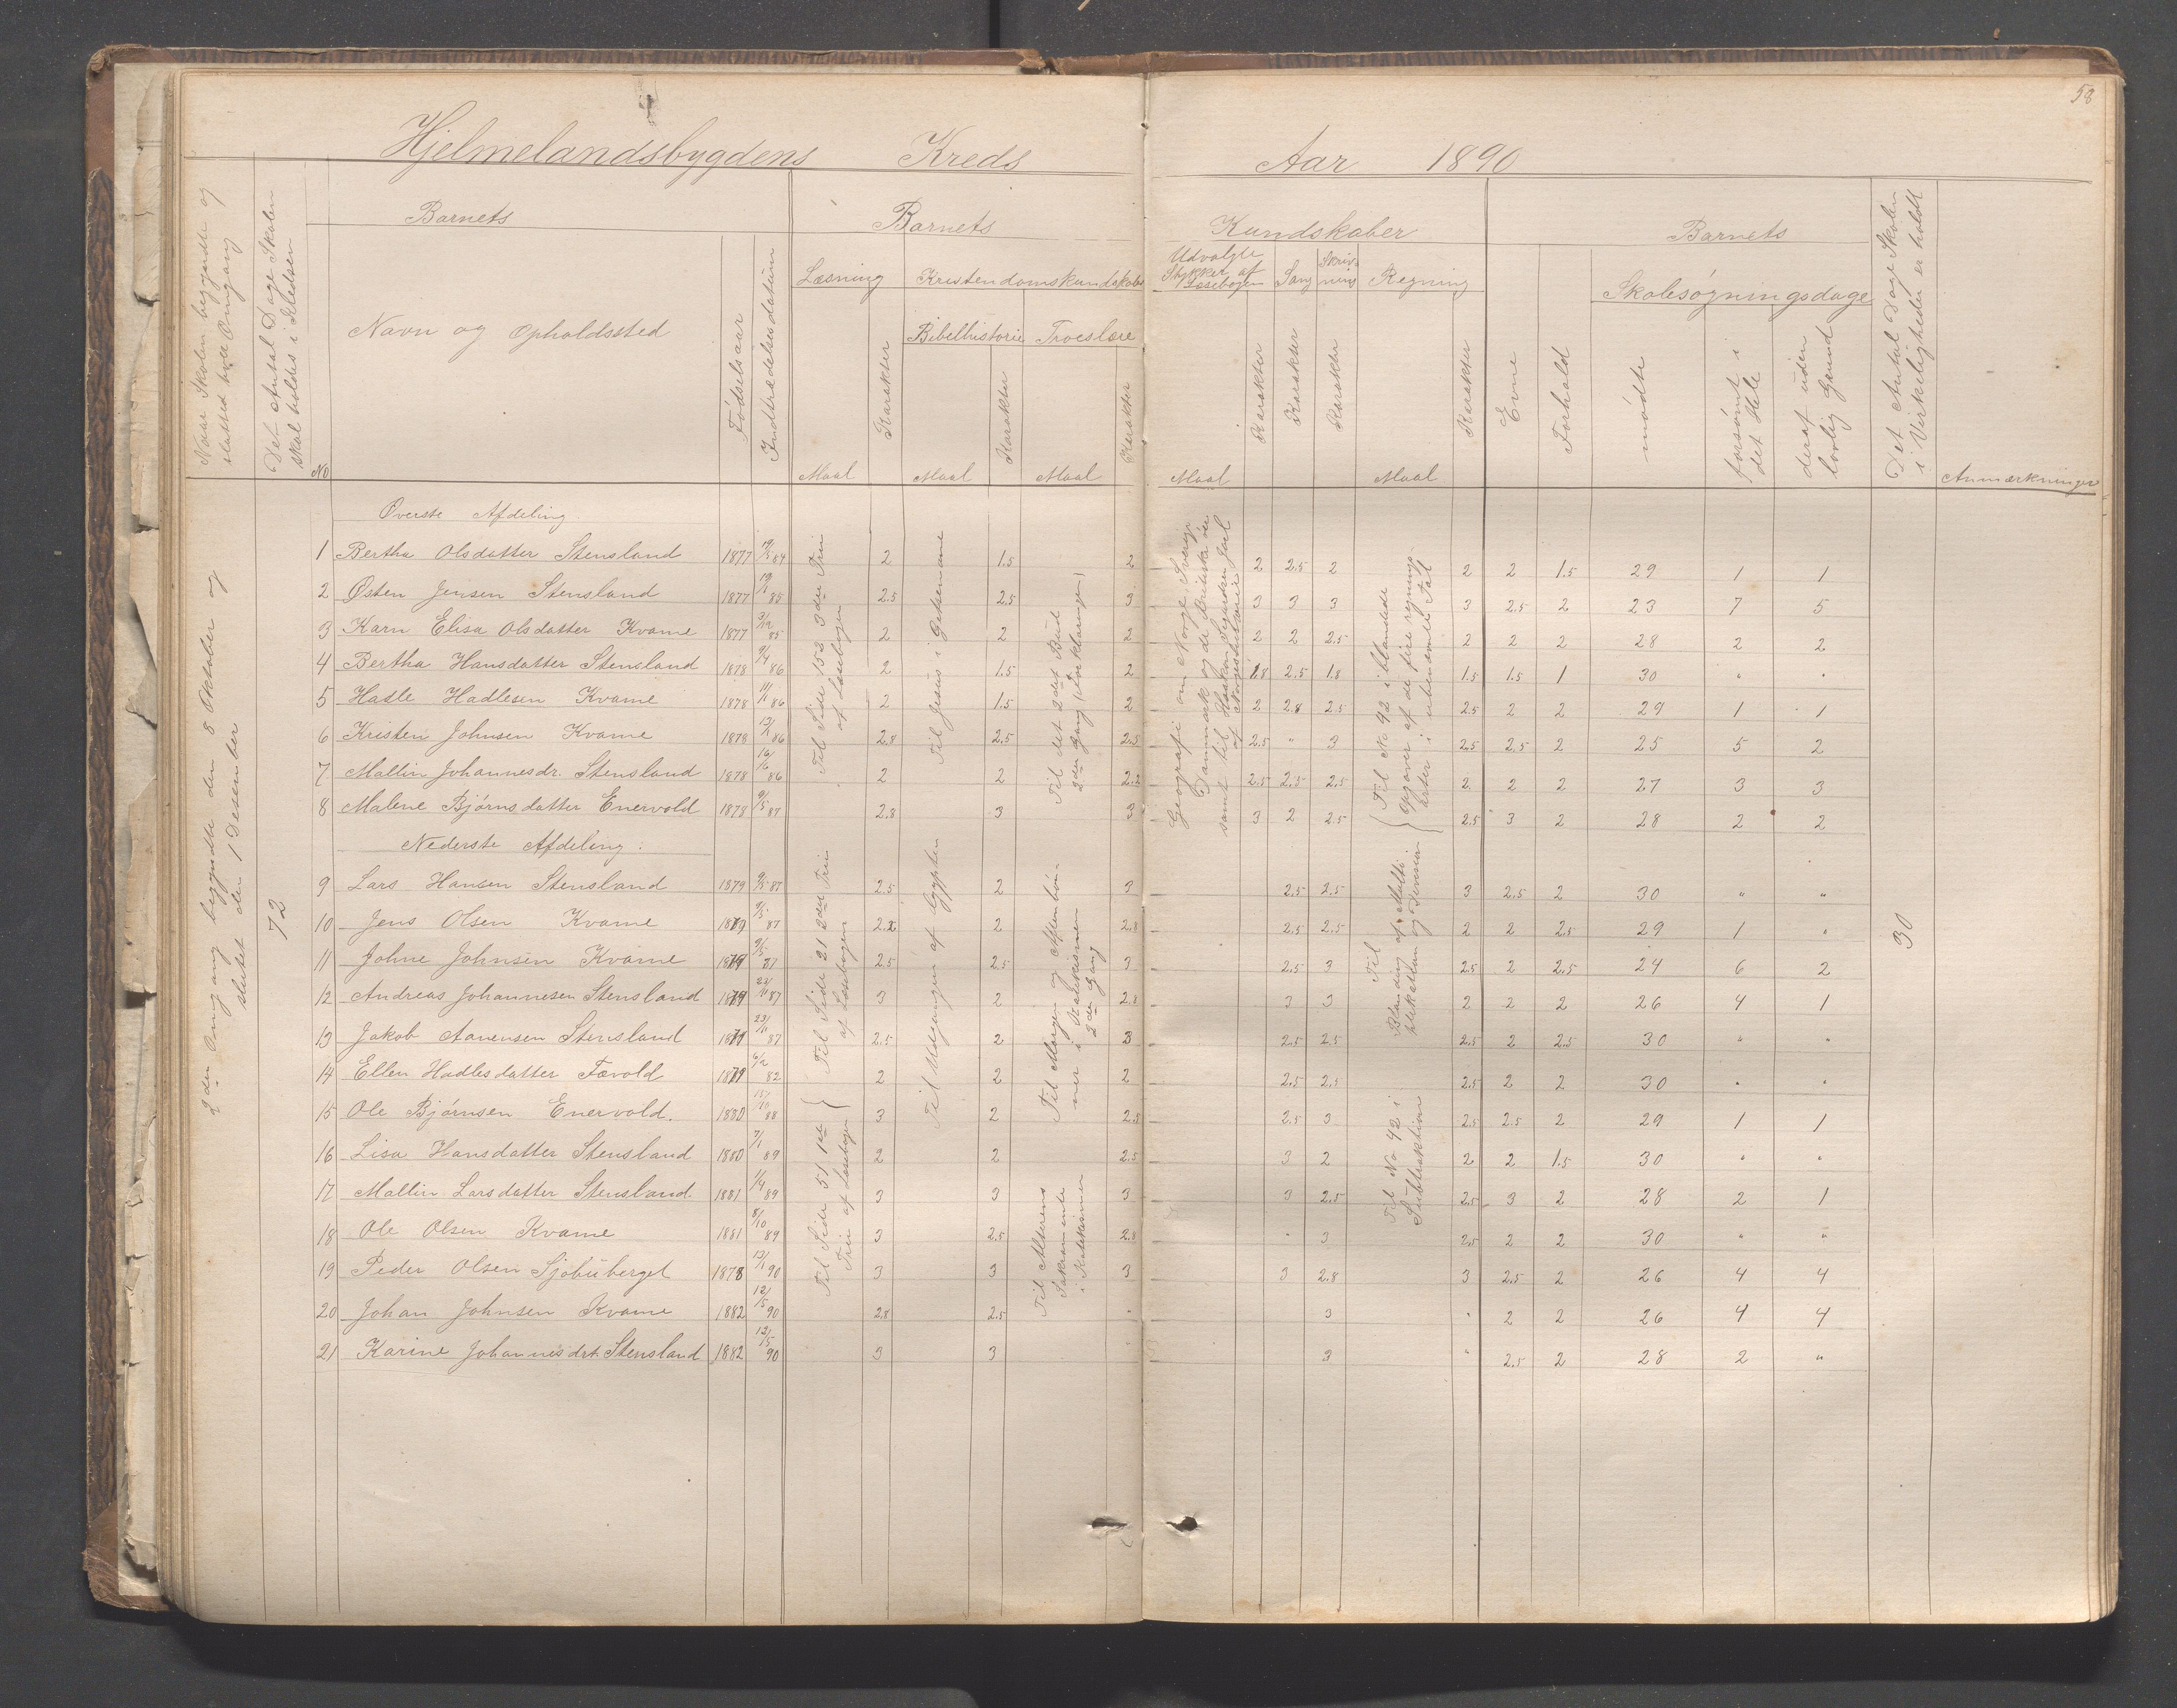 58
Hjelmelandsbygdens Kreds Aar 1890
Naar Skolen begyndte og slutted hver Omgang
Det Antal Dage Skolen skal holdes i Kredsen
No
Barnets
Navn og Opholdssted
Fødselsaar
Indtrædelsesdatum
Barnets Kundskaber
Læsning
Maal
Karakter
Kristendomskundskab
Bibelhistorie
Maal
Karakter
Troeslære
Maal
Karakter
Udvalgte Stykker af Læsebogen
Maal
Karakter
Sang
Karakter
Skrivning
Karakter
Regning
Maal
Karakter
Barnets
Evne
Forhold
Skolesøgningsdage
mødte
forsømt i det Hele
deraf uden lovlig Grund
Det Antal Dage Skolen i Virkeligheden er holdt
Anmærkninger
2den Omgang begyndte den 8 Oktober og sluttet den 1 Desember
72
30
Øverste Afdeling
1 Bertha Olsdatter Stensland 1877 19/5 84 2 1.5 2 2 2.5 2 2 2 1.5 29 1 1
2 Østen Jensen Stensland 1877 19/1 85 2.5 2.5 3 3 3 3 3 2.5 2 23 7 5
3 Karn Elisa Olsdatter Kvame 1877 3/12 85 2 2 2 2 2 2.5 2 2 2 28 2 2
4 Bertha Hansdatter Stensland 1878 9/4 86 2 1.5 2 1.8 2.5 1.8 1.5 1.5 1 30 " "
5 Hadle Hadlesen Kvame 1878 11/11 86 2 1.5 2 2 2.8 2.5 2.5 2 2 29 1 1
6 Kristen Johnsen Kvame 1878 13/4 86 2.8 2.5 2.5 2.5 " 3 2.5 2.5 2 25 5 2
7 Mallin Johannesdr. Stensland 1878 16/6 86 2 2 2.2 2.5 2.5 2.5 2 2 2 27 3 3
8 Malene Bjørnsdatter Enervold 1878 9/5 87 2.8 3 3 3 2 2.5 2.5 3 2 28 2 2
Nederste Afdeling:
9 Lars Hansen Stensland 1879 9/5 87 2.5 2 3 2.5 2.5 3 2.5 2 30 " "
10 Jens Olsen Kvame 1879 9/5 87 2.2 2 2.8 2.5 2.5 2 2 2.5 29 1 "
11 Johne Johnsen Kvame 1879 9/5 87 2.5 2.5 3 2.5 3 2.5 2 2.5 24 6 2
12 Andreas Johannesen Stensland 1879 22/11 87 3 2 2.8 3 3 2 2 2 26 4 1
13 Jakob Aanensen Stensland 1879 23/11 87 2.5 2 3 2.5 2.5 2.5 2 2.5 30 " "
14 Ellen Hadlesdatter Tævold 1879 6/2 82 2 2 2 2.5 2.5 2.5 2 2 30 " "
15 Ole Bjørnsen Enervold. 1880 15/10 88 3 2 2.5 2.5 3 2.5 2.5 2 29 1 1
16 Lisa Hansdatter Stensland 1880 7/1 89 2 2 2.5 3 2 2 2 1.5 30 " "
17 Mallin Larsdatter Stensland 1881 1/4 89 3 3 3 3 2.5 2.5 3 2 28 2 1
18 Ole Olsen Kvame 1881 8/10 89 3 2.5 2.8 " 3 2.5 2 2 30 " "
19 Peder Olsen Sjobuberget 1878 13/1 90 3 3 3 3 2.8 3 2.5 2 26 4 4
20 Johan Johnsen Kvame 1882 12/5 90 2.8 2.5 " 3 " 2 2 26 4 4
21 Karine Johannesdrt. Stensland 1882 12/5 90 3 3 3 " 2.5 2 28 2 "
Til Side 152 3die Trin af Læsebogen
Til Side 21 2det Trin af Læsebogen
Til Side 51 1ste Trin af Læsebogen
Til Jesus i Getsemane
Til Udgangen af Egypten
Til det 2det Bud 2den Gang (Forklaringen)
Til Morgen og Aftenbønner i Katekismen 2den Gang
Til Alterens Sakramente i Katekismen
Geografi om Norge, Sverige Danmark og de Britiske øer samt til Haakon Sigurdsen Jarl af Norgeshistorie
Til No 92 i blandede Opgaver af de fire regningsarter i ubenævnte Tal
Til Blanding af Multiplikation og Division
Til No 42 i Subtraktion